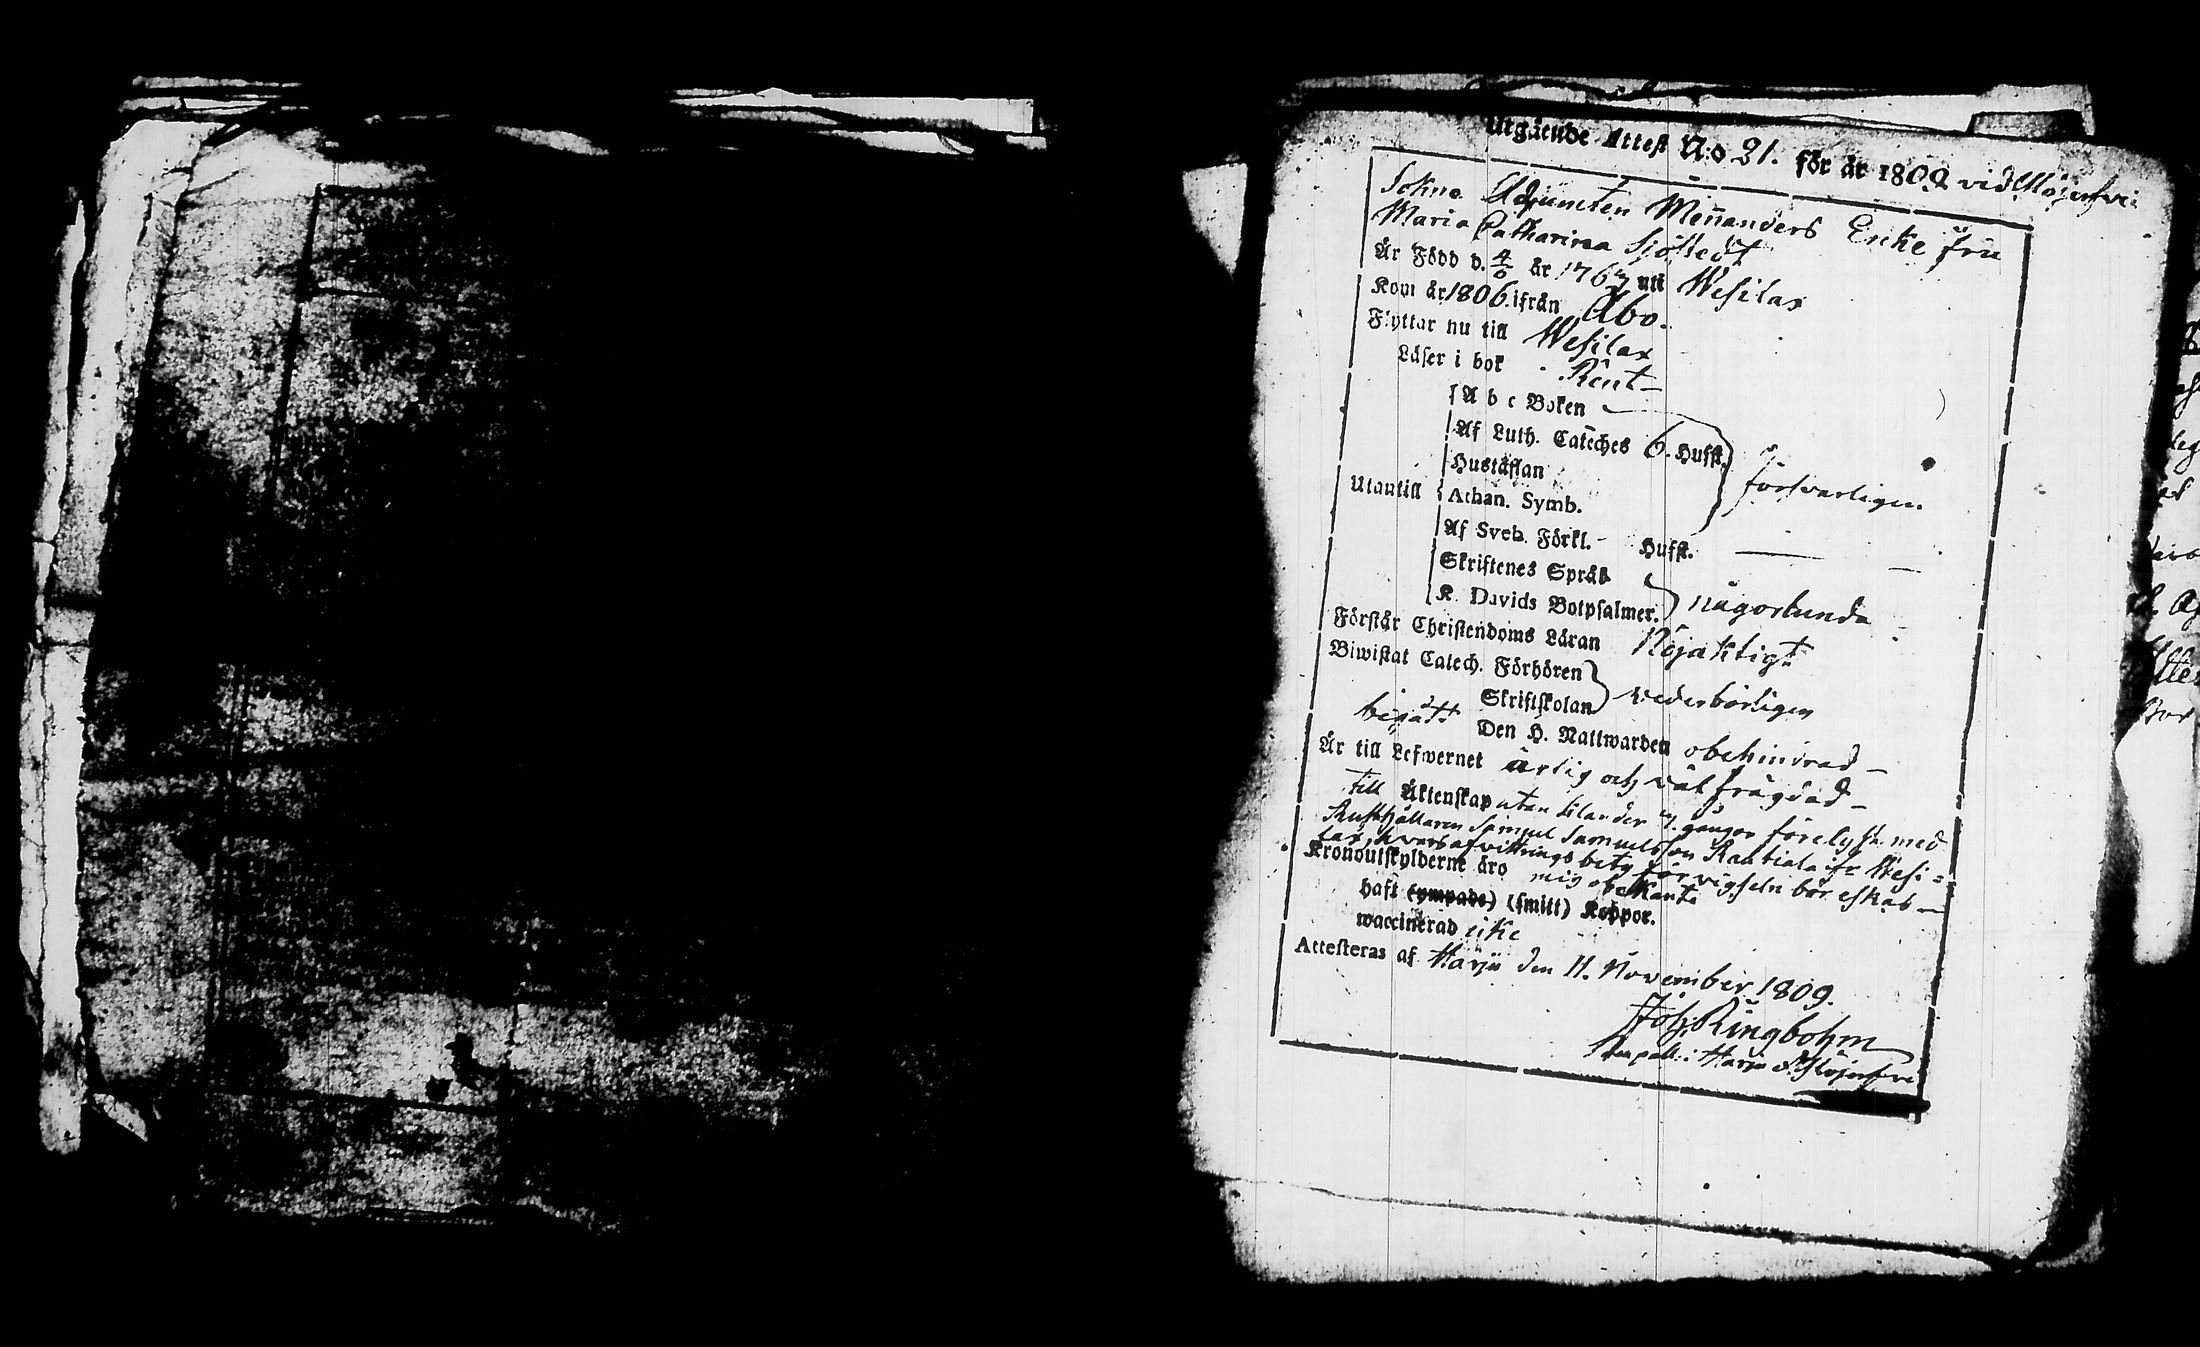 Utgående Attest N:o 31. för år 1809 vid
Sokne Adjuncten Men̄anders Enke fru
Maria Catharina Sjöstedt
Är Född d. 4/6 år 1767 uti Wesilax
Kom år 1806. ifrån Åbo.
Flyttar nu till Wesilax
Läser i bok Rent
A b c Boken
Af Luth. Catëches 6. Hufst.
Hustaflan
Utantill Athan. Symb. försvarligen
Af Sveb. Förkl. - Hufst.
Skriftenes Språk
K. Davids Botpsalmer. någorlunda
Förstår Christendoms Läran Nöjaktigt
Biwistat Catech. Förhören
Skriftskolan vederbörligen
begått Den H. Nattwarden obehindrad
Är till Lefwernet ärlig och väl frägdad
till Äktenskap utan klander 3. gångor förelyst med
Rusthållaren Samuel Samuelsson Rautiala ifr Wesi=
lax, hvars afvittrings betyg för vigseln bör eskas
Kronoutskylderne äro mig obekanta
haft (ympade) (smitt) Koppor.
waccinerad icke
Attesteras af Harju den 11. November 1809.
Joh. Ringbohm